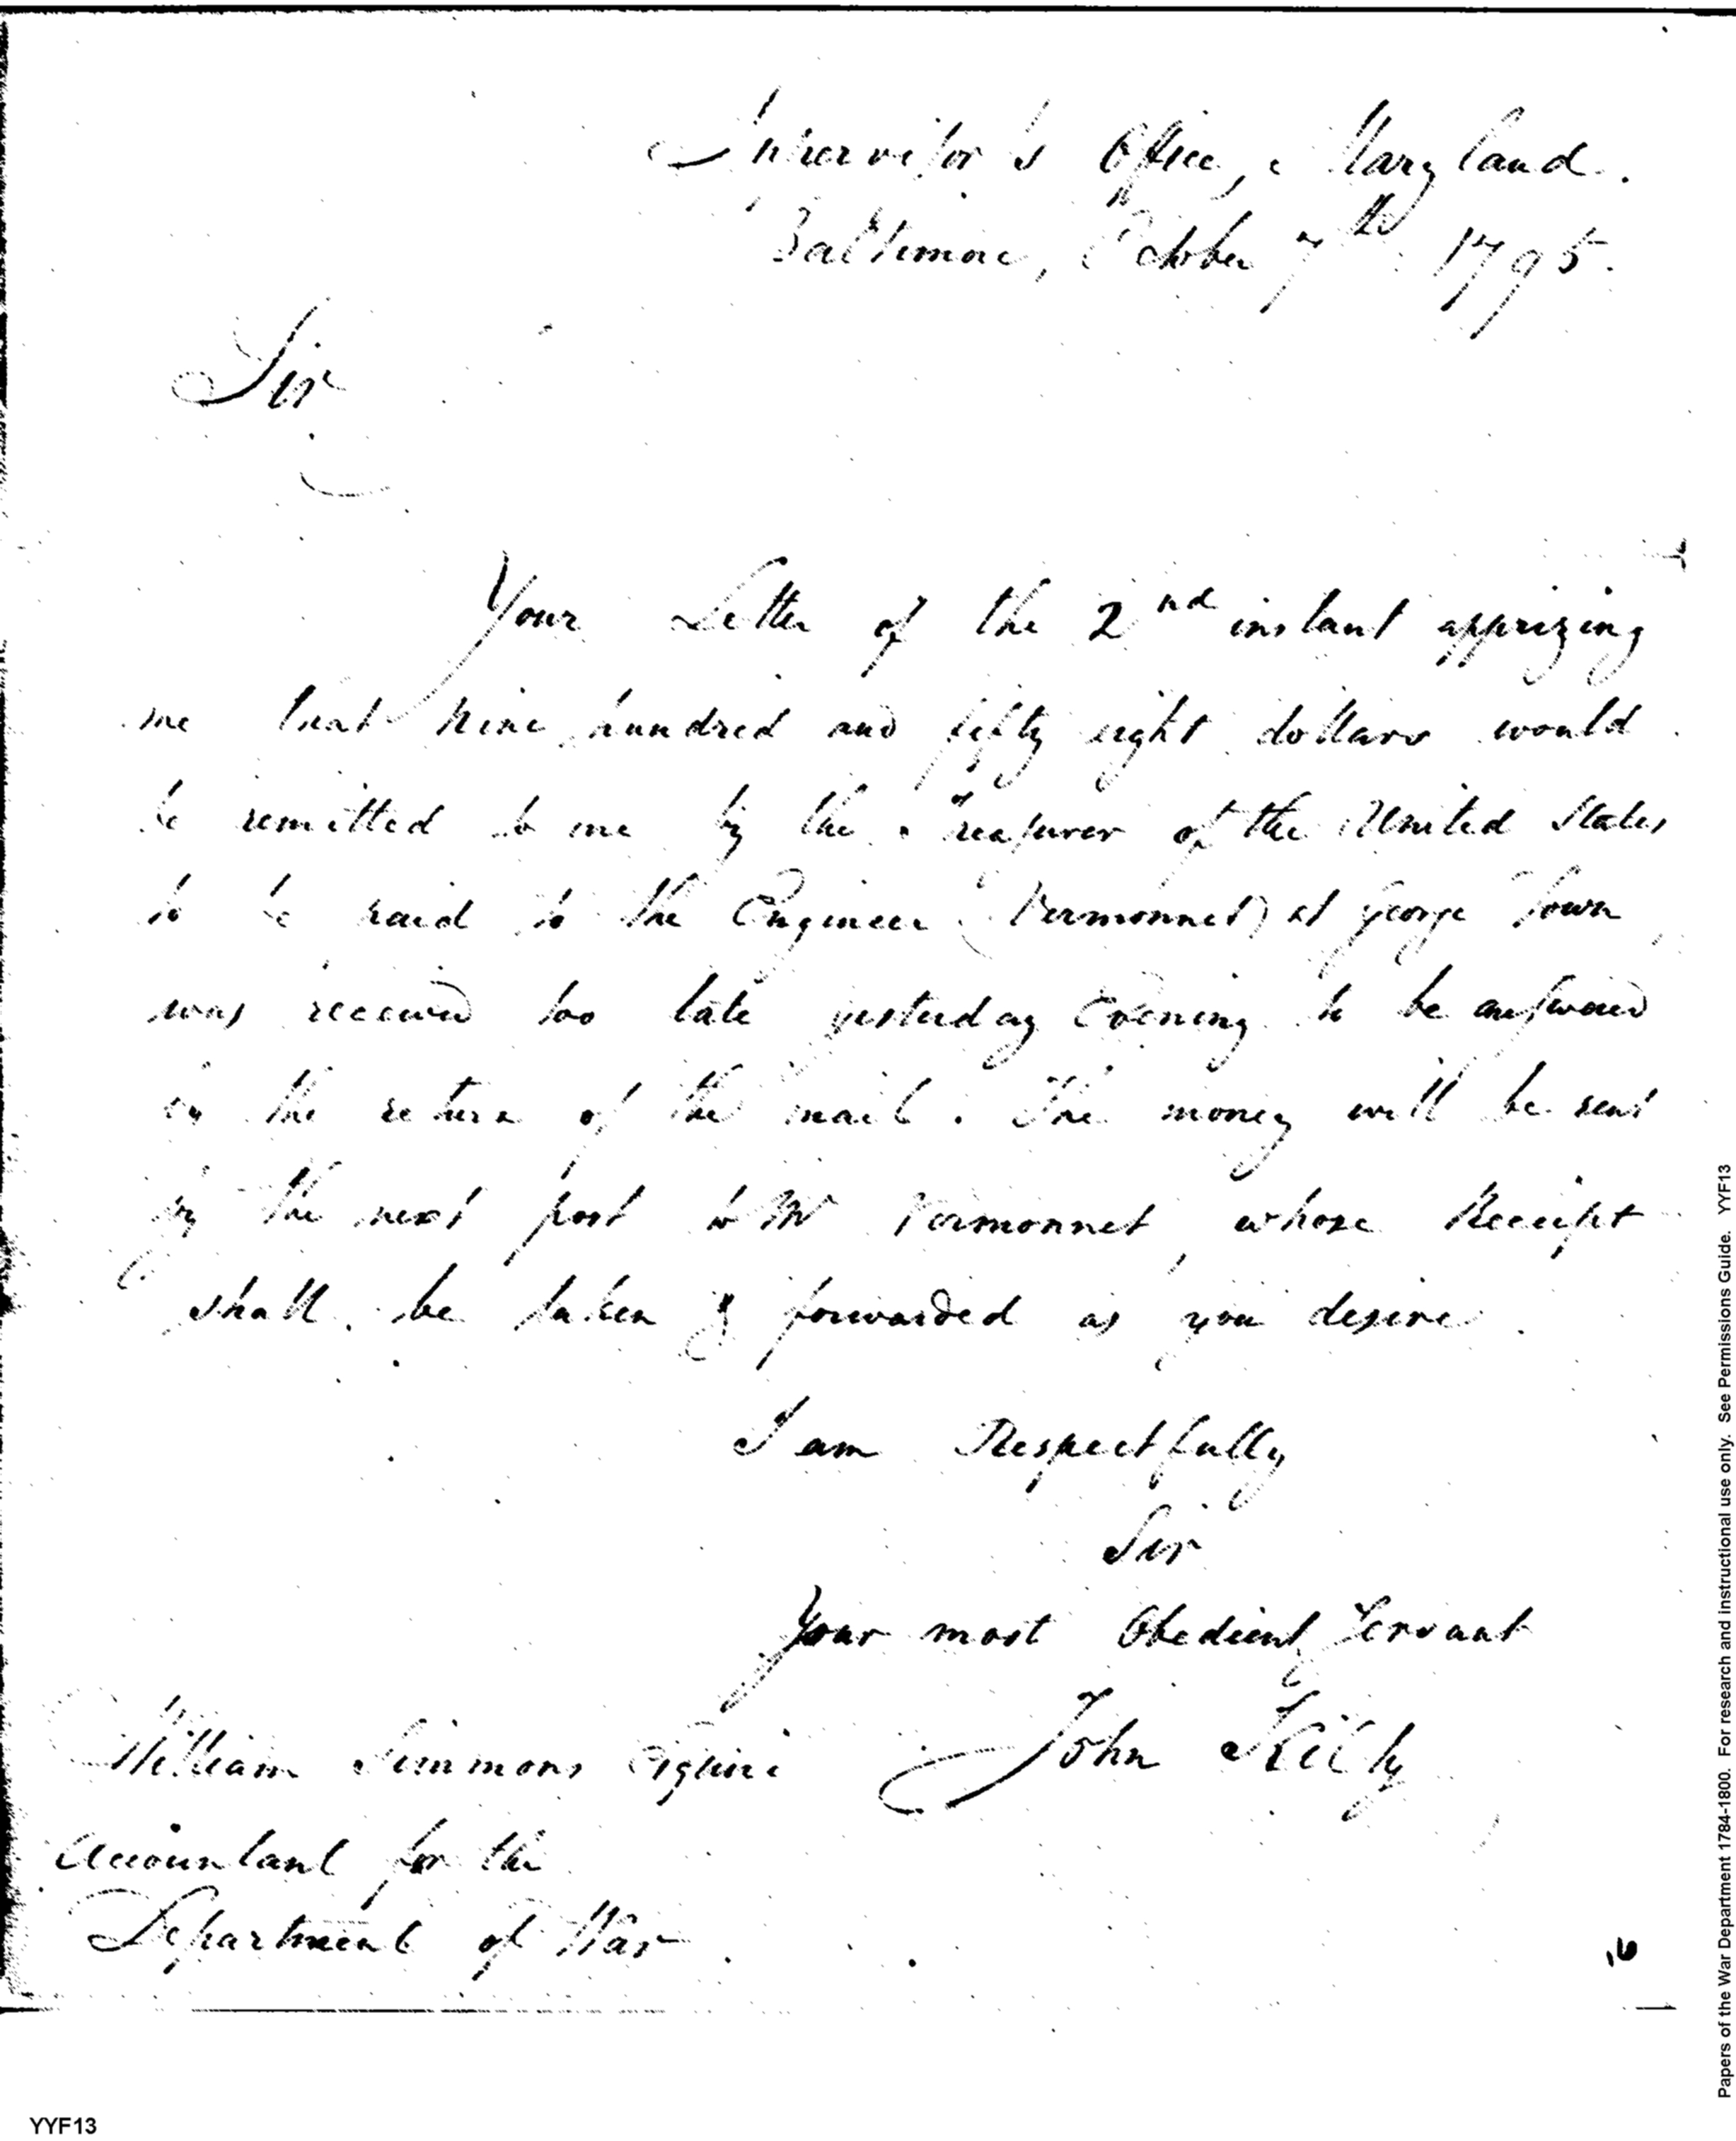 Supervisor's Office, Maryland.
Baltimore, October 7th 1795.
Sir
Your Letter of the 2nd instant apprizing
me that nine hundred and fifty eight dollars would
be remitted to me by the Treasurer of the United States
to be paid to the Engineer (Vermonnet) at George Town,
was received too late yesterday Evening to be answered
by the return of the mail. The money will be sent
by the next post to Mr Vermonnet, whose Receipt
shall be taken & forwarded as you desire.
I am Respectfully
Sir
Your most Obedient Servant
John Kilty
William Simmons Esquire
Accountant for the
Department of War.
16
YYF13
Papers of the War Department 1784-1800. For research and instructional use only. See Permissions Guide. YYF13